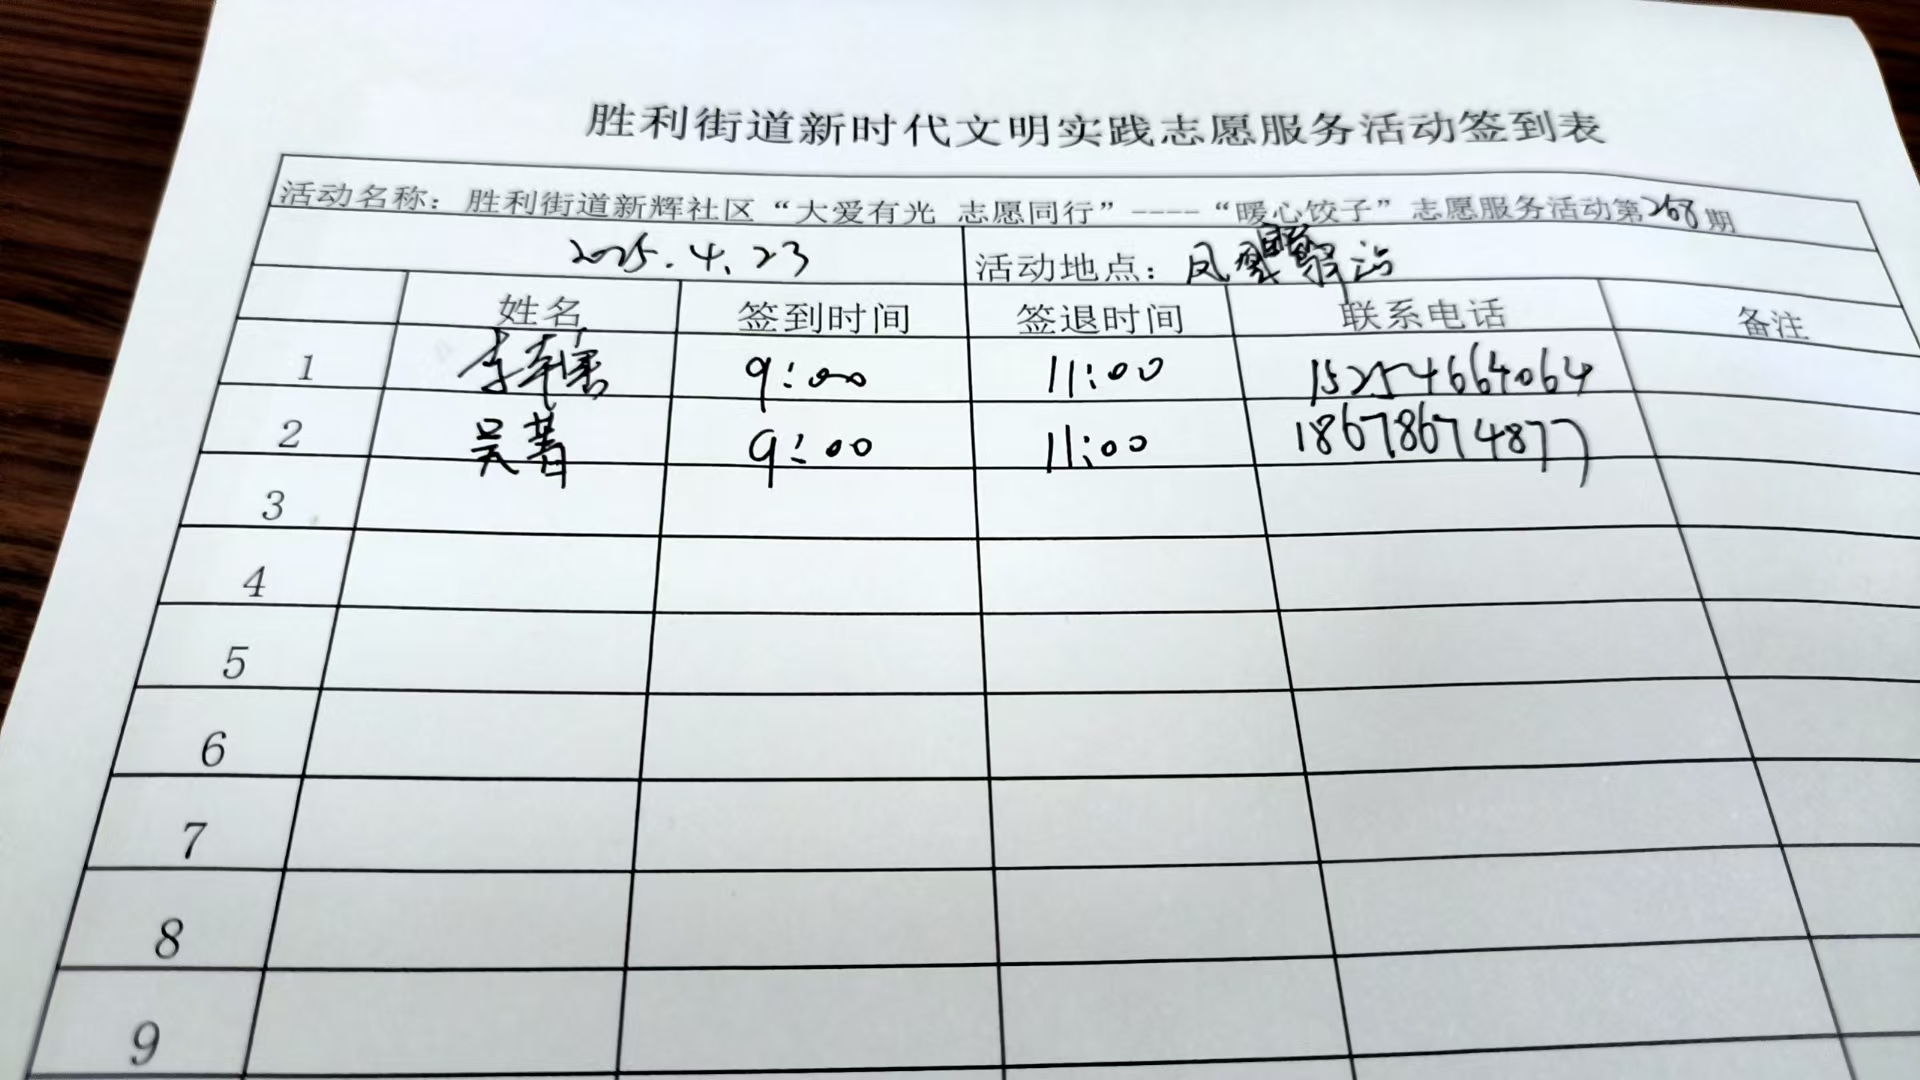 胜利街道新时代文明实践志愿服务活动签到表
活动名称：胜利街道新辉社区“大爱有光 志愿同行”----“暖心饺子”志愿服务活动第268期
2025.4.23 活动地点：凤 站
姓名 签到时间 签退时间 联系电话 备注
1 李 9:00 11:00 15254664064
2 吴菁 9:00 11:00 18678674877
3
4
5
6
7
8
9